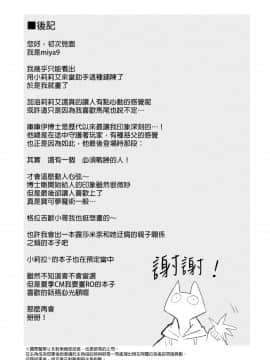 ■後記
您好，初次見面
我是miya9
我幾乎只能看出
用小莉莉艾來當助手這種鋪陳了
於是我就畫了
加油莉莉艾還真的讓人有點心動的感覺呢
或許這只是因為我喜歡馬尾也說不定…
庫庫伊博士是歷代以來最讓我印象深刻的…！
他總是在途中守護著玩家，有種益父的感覺
也正是因為如此，他最後登場時那段：
其實 還有一個 必須戰勝的人！
才會這麼動人心弦～
博士剛開始給人的印象雖然很微妙
但是最後卻讓人喜歡上了
真是寶可夢魔術一般…
格拉吉歐小哥我也挺想畫的～
也許我會出一本露莎米奈和她迂腐的親子關係
之類的本子吧
小莉拉°的本子也在預定當中
雖然不知道會不會當選
但是夏季CM我要畫RO的本子
喜歡的話務必光顧喔
那麼再會
掰掰！
謝謝！